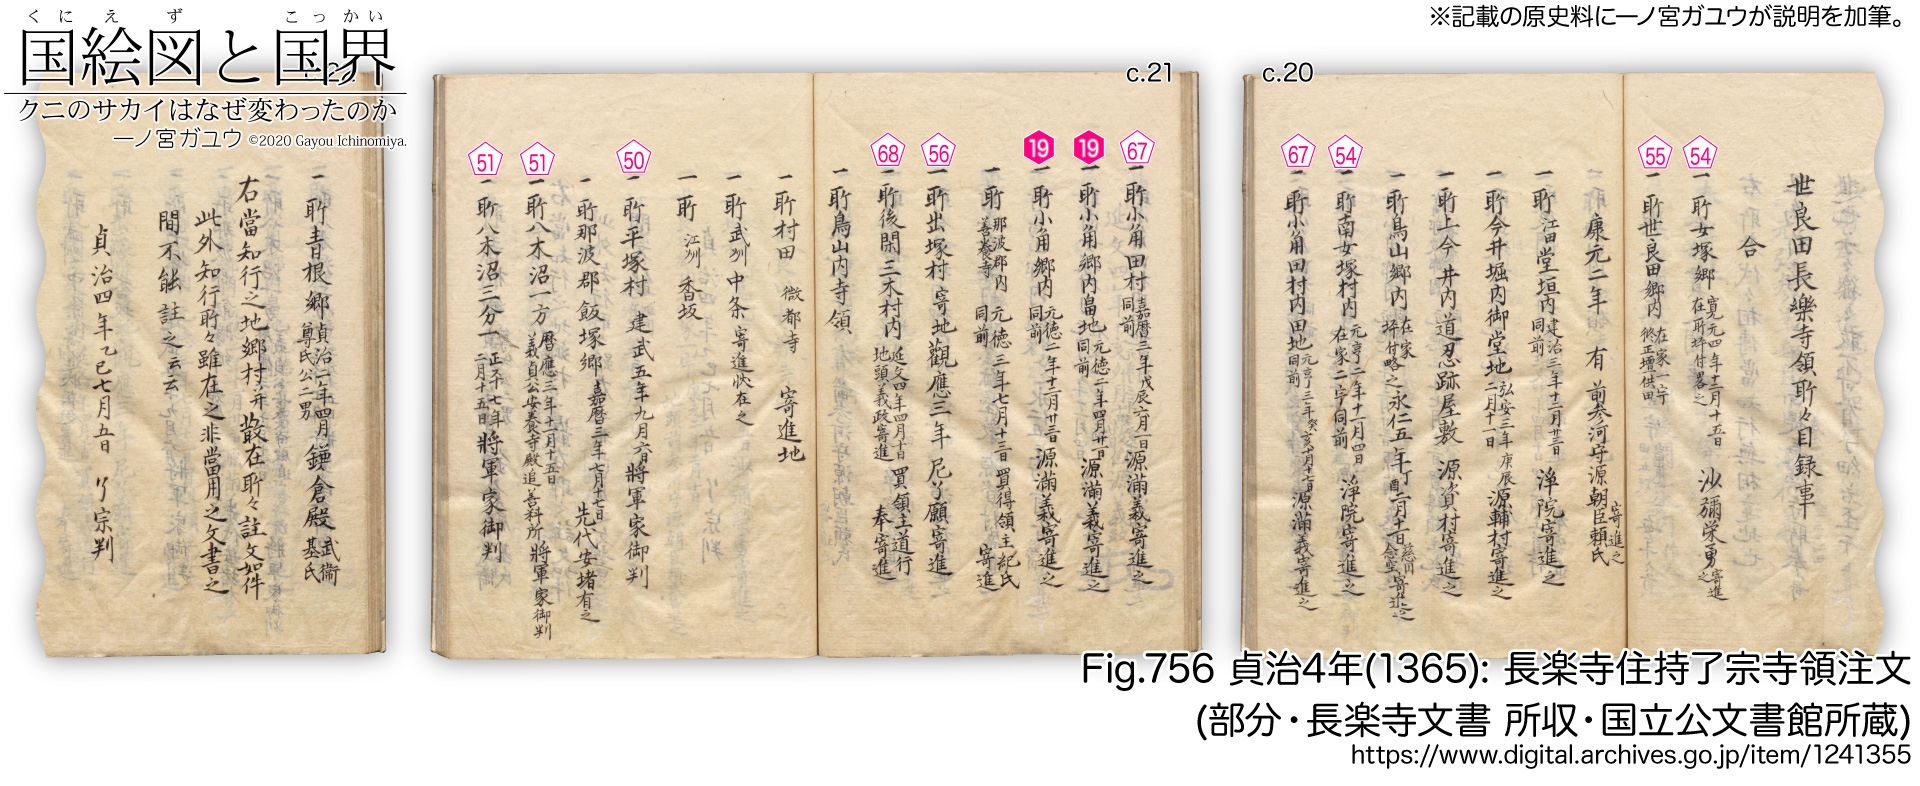 ※記載の原史料に一ノ宮ガユウが説明を加筆。
くにえず こっかい
国絵図と国界
クニのサカイはなぜ変わったのか
一ノ宮ガユウ ©2020 Gayou Ichinomiya.
c.20
世良田長樂寺領所々目録事
合
54
一 所女塚郷 寛元四年十二月十五日 在所坪付畧之 沙彌栄勇寄進之
55
一 所世良田郷内 在家一宇
康元二年 有 前参河守源朝臣頼氏寄進之
一 所江田堂垣内 建治三年十二月廿三日 同前 淨院寄進之
一 所今井堀内御堂地 弘安三年庚辰 二月十一日 源輔村寄進之
一 所上今井内道忍跡屋敷 源資村寄進之
一 所鳥山郷内 在家 坪付略之 永仁五年丁酉二月十一日 寄進之
54
一 所南女塚村内 元亨二年十一月四日 在家二宇同前 淨院寄進之
67
一 所小角田村内田地 同前 源満義寄進之
c.21
67
一 所小角田村 嘉暦三年戊辰六月一日 同前 源満義寄進之
19
一 所小角郷内畠地 元徳二年四月廿一日 同前 源満義寄進之
19
一 所小角郷内 元徳二年十二月廿三日 同前 源満義寄進之
一 所 那波郡内 善養寺 元徳三年七月十三日 同前 買得領主紀氏寄進
56
一 所出塚村 寄地觀應三年 尼了願寄進
68
一 所後閑三木村内 延文四年四月十日 地頭義政寄進 買領主道行 奉寄進
一 所鳥山内寺領
一 所村田 微都寺 寄進地
一 所武州中条 寄進状在之
一 所江州香坂
50
一 所平塚村 建武五年九月六日 將軍家御判
一 所那波郡飯塚郷 嘉暦三年七月十七日 先代安堵有之
51
一 所八木沼一方 暦應三年十一月十五日 義貞公安養寺殿追善料所 將軍家御判
51
一 所八木沼三分一 正平七年 二月十五日 將軍家御判
一 所青根郷 貞治二年四月 尊氏公二男 鎌倉殿 武衛 基氏
右當知行之地郷村并散在所々註文如件
此外知行所々雖在之非當用之文書之
間不能註之云云
貞治四年乙巳七月五日 了宗判
Fig.756 貞治4年(1365): 長楽寺住持了宗寺領注文
(部分・長楽寺文書 所収・国立公文書館所蔵)
https://www.digital.archives.go.jp/item/1241355